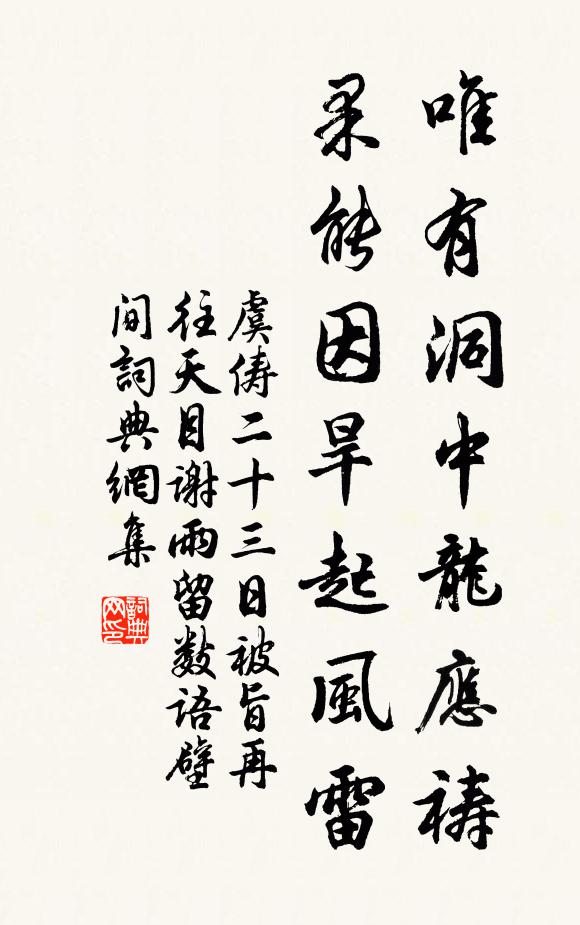 唯有洞中龍應禱
果能因旱起風雷
虞儔二十三日被旨再
往天目謝雨留數語壁
間詞典網集
詞典
网印